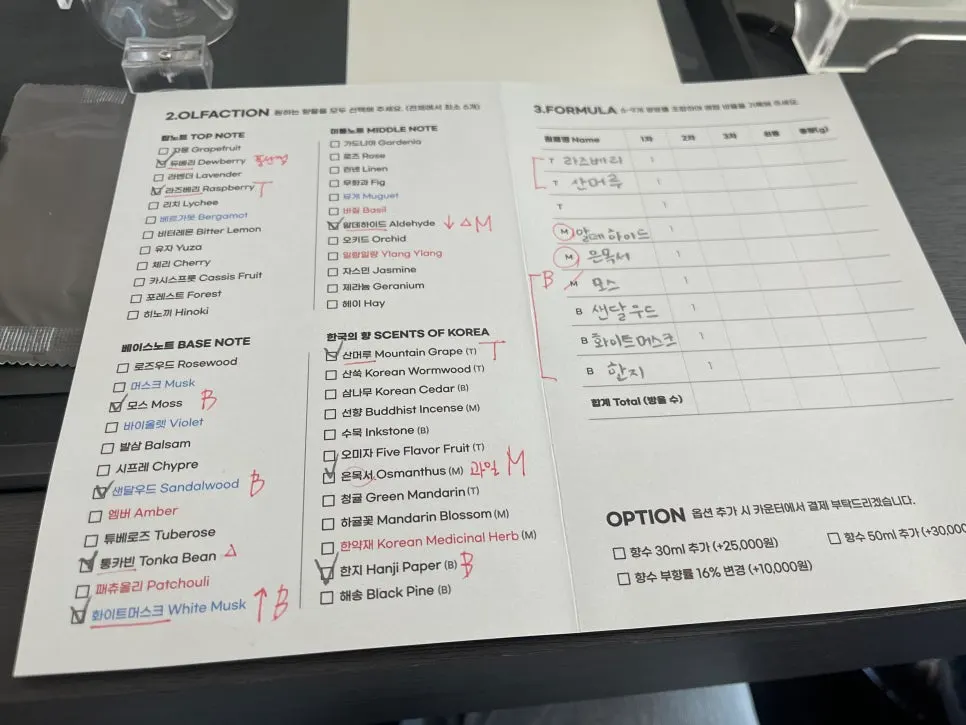 2.OLFACTION 원하는 향들을 모두 선택해 주세요. (전체에서 최소 6개)
탑노트 TOP NOTE
자몽 Grapefruit
듀베리 Dewberry 풍선껌
라벤더 Lavender
라즈베리 Raspberry T
리치 Lychee
베르가못 Bergamot
비터레몬 Bitter Lemon
유자 Yuza
체리 Cherry
카시스프룻 Cassis Fruit
포레스트 Forest
히노끼 Hinoki
미들노트 MIDDLE NOTE
가드니아 Gardenia
로즈 Rose
린넨 Linen
무화과 Fig
뮤게 Muguet
바질 Basil
알데하이드 Aldehyde ↓ △ M
오키드 Orchid
일랑일랑 Ylang Ylang
자스민 Jasmine
제라늄 Geranium
헤이 Hay
베이스노트 BASE NOTE
로즈우드 Rosewood
머스크 Musk
모스 Moss B
바이올렛 Violet
발삼 Balsam
시프레 Chypre
샌달우드 Sandalwood B
엠버 Amber
튜베로즈 Tuberose
통카빈 Tonka Bean △
패츄올리 Patchouli
화이트머스크 White Musk ↑ B
한국의 향 SCENTS OF KOREA
산머루 Mountain Grape (T) T
산쑥 Korean Wormwood (T)
삼나무 Korean Cedar (B)
선향 Buddhist Incense (M)
수묵 Inkstone (B)
오미자 Five Flavor Fruit (T)
은목서 Osmanthus (M) 과일 M
청귤 Green Mandarin (T)
하귤꽃 Mandarin Blossom (M)
한약재 Korean Medicinal Herb (M)
한지 Hanji Paper (B) B
해송 Black Pine (B)
3.FORMULA
Name 1차 2차 3차 (g)
T 라즈베리 1
T 산머루 1
T 1
M 알데하이드 1
M 은목서 1
B M 모스 1
B 샌달우드 1
B 화이트머스크 1
B 한지 1
합계 Total (방울 수)
OPTION 옵션 추가 시 카운터에서 결제 부탁드리겠습니다.
향수 30ml 추가 (+25,000원)
향수 50ml 추가 (+30,000
향수 부향률 16% 변경 (+10,000원)